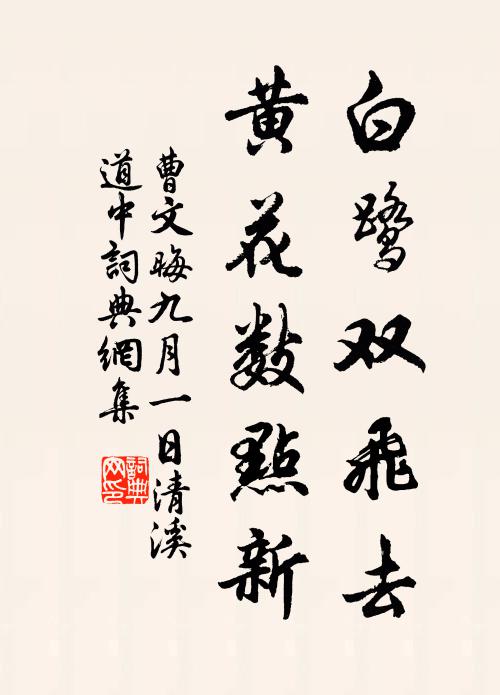 白鹭双飞去
黄花数點新
曹文晦九月一日清溪
道中詞典網集
詞典
网印